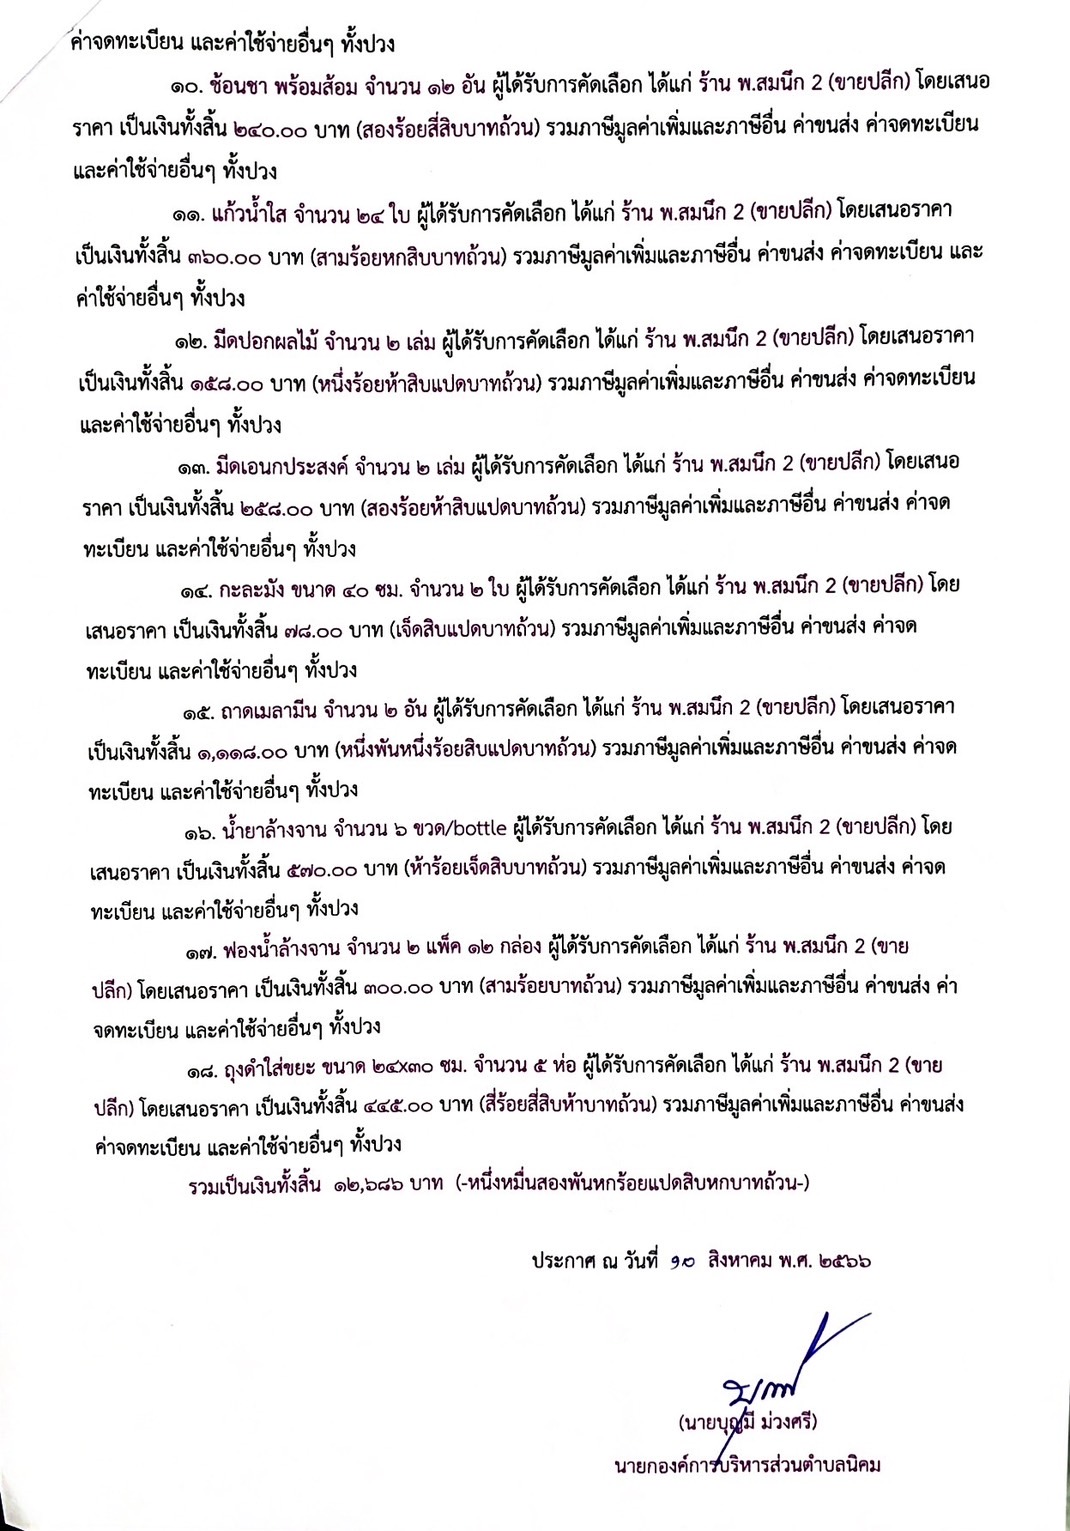 ค่าจดทะเบียน และค่าใช้จ่ายอื่นๆ ทั้งปวง
๑๐. ช้อนชา พร้อมส้อม จำนวน ๑๒ อัน ผู้ได้รับการคัดเลือก ได้แก่ ร้าน พ.สมนึก 2 (ขายปลีก) โดยเสนอ
ราคา เป็นเงินทั้งสิ้น ๒๔๐.๐๐ บาท (สองร้อยสี่สิบบาทถ้วน) รวมภาษีมูลค่าเพิ่มและภาษีอื่น ค่าขนส่ง ค่าจดทะเบียน
และค่าใช้จ่ายอื่นๆ ทั้งปวง
๑๑. แก้วน้ำใส จำนวน ๒๔ ใบ ผู้ได้รับการคัดเลือก ได้แก่ ร้าน พ.สมนึก 2 (ขายปลีก) โดยเสนอราคา
เป็นเงินทั้งสิ้น ๓๖๐.๐๐ บาท (สามร้อยหกสิบบาทถ้วน) รวมภาษีมูลค่าเพิ่มและภาษีอื่น ค่าขนส่ง ค่าจดทะเบียน และ
ค่าใช้จ่ายอื่นๆ ทั้งปวง
๑๒. มีดปอกผลไม้ จำนวน ๒ เล่ม ผู้ได้รับการคัดเลือก ได้แก่ ร้าน พ.สมนึก 2 (ขายปลีก) โดยเสนอราคา
เป็นเงินทั้งสิ้น ๑๕๘.๐๐ บาท (หนึ่งร้อยห้าสิบแปดบาทถ้วน) รวมภาษีมูลค่าเพิ่มและภาษีอื่น ค่าขนส่ง ค่าจดทะเบียน
และค่าใช้จ่ายอื่นๆ ทั้งปวง
๑๓. มีดเอนกประสงค์ จำนวน ๒ เล่ม ผู้ได้รับการคัดเลือก ได้แก่ ร้าน พ.สมนึก 2 (ขายปลีก) โดยเสนอ
ราคา เป็นเงินทั้งสิ้น ๒๕๘.๐๐ บาท (สองร้อยห้าสิบแปดบาทถ้วน) รวมภาษีมูลค่าเพิ่มและภาษีอื่น ค่าขนส่ง ค่าจด
ทะเบียน และค่าใช้จ่ายอื่นๆ ทั้งปวง
๑๔. กะละมัง ขนาด ๔๐ ซม. จำนวน ๒ ใบ ผู้ได้รับการคัดเลือก ได้แก่ ร้าน พ.สมนึก 2 (ขายปลีก) โดย
เสนอราคา เป็นเงินทั้งสิ้น ๗๘.๐๐ บาท (เจ็ดสิบแปดบาทถ้วน) รวมภาษีมูลค่าเพิ่มและภาษีอื่น ค่าขนส่ง ค่าจด
ทะเบียน และค่าใช้จ่ายอื่นๆ ทั้งปวง
๑๕. ถาดเมลามีน จำนวน ๒ อัน ผู้ได้รับการคัดเลือก ได้แก่ ร้าน พ.สมนึก 2 (ขายปลีก) โดยเสนอราคา
เป็นเงินทั้งสิ้น ๑,๑๑๘.๐๐ บาท (หนึ่งพันหนึ่งร้อยสิบแปดบาทถ้วน) รวมภาษีมูลค่าเพิ่มและภาษีอื่น ค่าขนส่ง ค่าจด
ทะเบียน และค่าใช้จ่ายอื่นๆ ทั้งปวง
๑๖. น้ำยาล้างจาน จำนวน ๖ ขวด/bottle ผู้ได้รับการคัดเลือก ได้แก่ ร้าน พ.สมนึก 2 (ขายปลีก) โดย
เสนอราคา เป็นเงินทั้งสิ้น ๕๗๐.๐๐ บาท (ห้าร้อยเจ็ดสิบบาทถ้วน) รวมภาษีมูลค่าเพิ่มและภาษีอื่น ค่าขนส่ง ค่าจด
ทะเบียน และค่าใช้จ่ายอื่นๆ ทั้งปวง
๑๗. ฟองน้ำล้างจาน จำนวน ๒ แพ็ค ๑๒ กล่อง ผู้ได้รับการคัดเลือก ได้แก่ ร้าน พ.สมนึก 2 (ขาย
ปลีก) โดยเสนอราคา เป็นเงินทั้งสิ้น ๓๐๐.๐๐ บาท (สามร้อยบาทถ้วน) รวมภาษีมูลค่าเพิ่มและภาษีอื่น ค่าขนส่ง ค่า
จดทะเบียน และค่าใช้จ่ายอื่นๆ ทั้งปวง
๑๘. ถุงดำใส่ขยะ ขนาด ๒๔x๓๐ ซม. จำนวน ๕ ห่อ ผู้ได้รับการคัดเลือก ได้แก่ ร้าน พ.สมนึก 2 (ขาย
ปลีก) โดยเสนอราคา เป็นเงินทั้งสิ้น ๔๔๕.๐๐ บาท (สี่ร้อยสี่สิบห้าบาทถ้วน) รวมภาษีมูลค่าเพิ่มและภาษีอื่น ค่าขนส่ง
ค่าจดทะเบียน และค่าใช้จ่ายอื่นๆ ทั้งปวง
รวมเป็นเงินทั้งสิ้น ๑๒,๖๘๖ บาท (-หนึ่งหมื่นสองพันหกร้อยแปดสิบหกบาทถ้วน-)
ประกาศ ณ วันที่ ๑๐ สิงหาคม พ.ศ. ๒๕๖๖
(นายบุญมี ม่วงศรี)
นายกองค์การบริหารส่วนตำบลนิคม